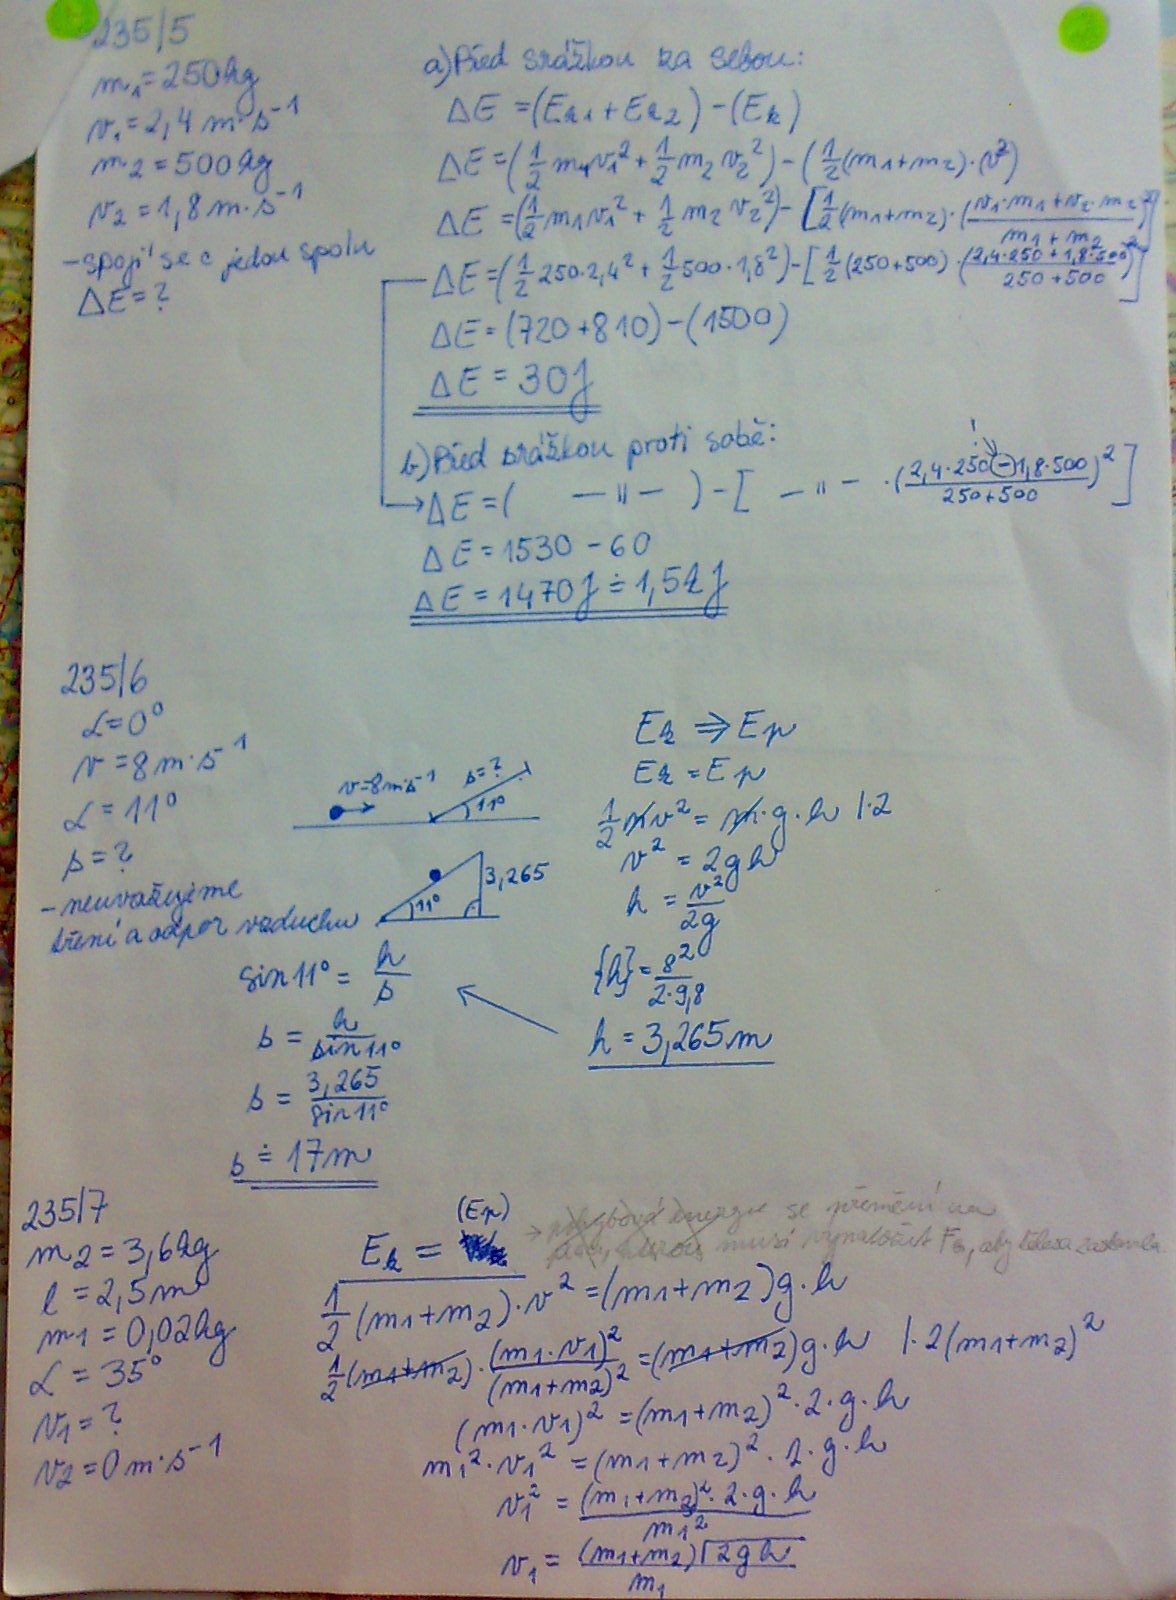 235/5
m₁=250kg
v₁=2,4 m·s⁻¹
m₂=500kg
v₂=1,8 m·s⁻¹
-spojí se a jedou spolu
ΔE=?
a)Před srážkou za sebou:
ΔE =(Ek1+Ek2)-(Ek)
ΔE=(1/2 m₁v₁²+1/2 m₂v₂²)-(1/2(m₁+m₂)·v²)
ΔE=(1/2 m₁v₁²+1/2 m₂v₂²)-[1/2(m₁+m₂)·((v₁·m₁+v₂·m₂)/(m₁+m₂))²]
ΔE=(1/2 250·2,4²+1/2 500·1,8²)-[1/2(250+500)·((2,4·250+1,8·500)/(250+500))²]
ΔE=(720+810)-(1500)
ΔE=30J
b)Před srážkou proti sobě:
!
→ΔE=( —"— )-[ —"— ·((2,4·250-1,8·500)/(250+500))²]
ΔE=1530-60
ΔE=1470J≐1,5kJ
235/6
α=0°
v=8m·s⁻¹
α=11°
s=?
-neuvažujeme
tření a odpor vzduchu
v=8m·s⁻¹ s=?
11°
3,265
11°
sin11°=h/s
s=h/sin11°
s=3,265/sin11°
s≐17m
Ek⇒Ep
Ek=Ep
1/2mv²=m·g·h |·2
v²=2gh
h=v²/2g
{h}=8²/2·9,8
h=3,265m
235/7
m₂=3,6kg
l=2,5m
m₁=0,02kg
α=35°
v₁=?
v₂=0m·s⁻¹
(Ep)
Ek=
→ pohybová energie se přemění na
musí vynaložit
1/2(m₁+m₂)·v²=(m₁+m₂)g·h
1/2(m₁+m₂)·(m₁·v₁)²/(m₁+m₂)²=(m₁+m₂)g·h |·2(m₁+m₂)²
(m₁·v₁)²=(m₁+m₂)²·2·g·h
m₁²·v₁²=(m₁+m₂)²·2·g·h
v₁²=(m₁+m₂)²·2·g·h/m₁²
v₁=(m₁+m₂)√2gh/m₁